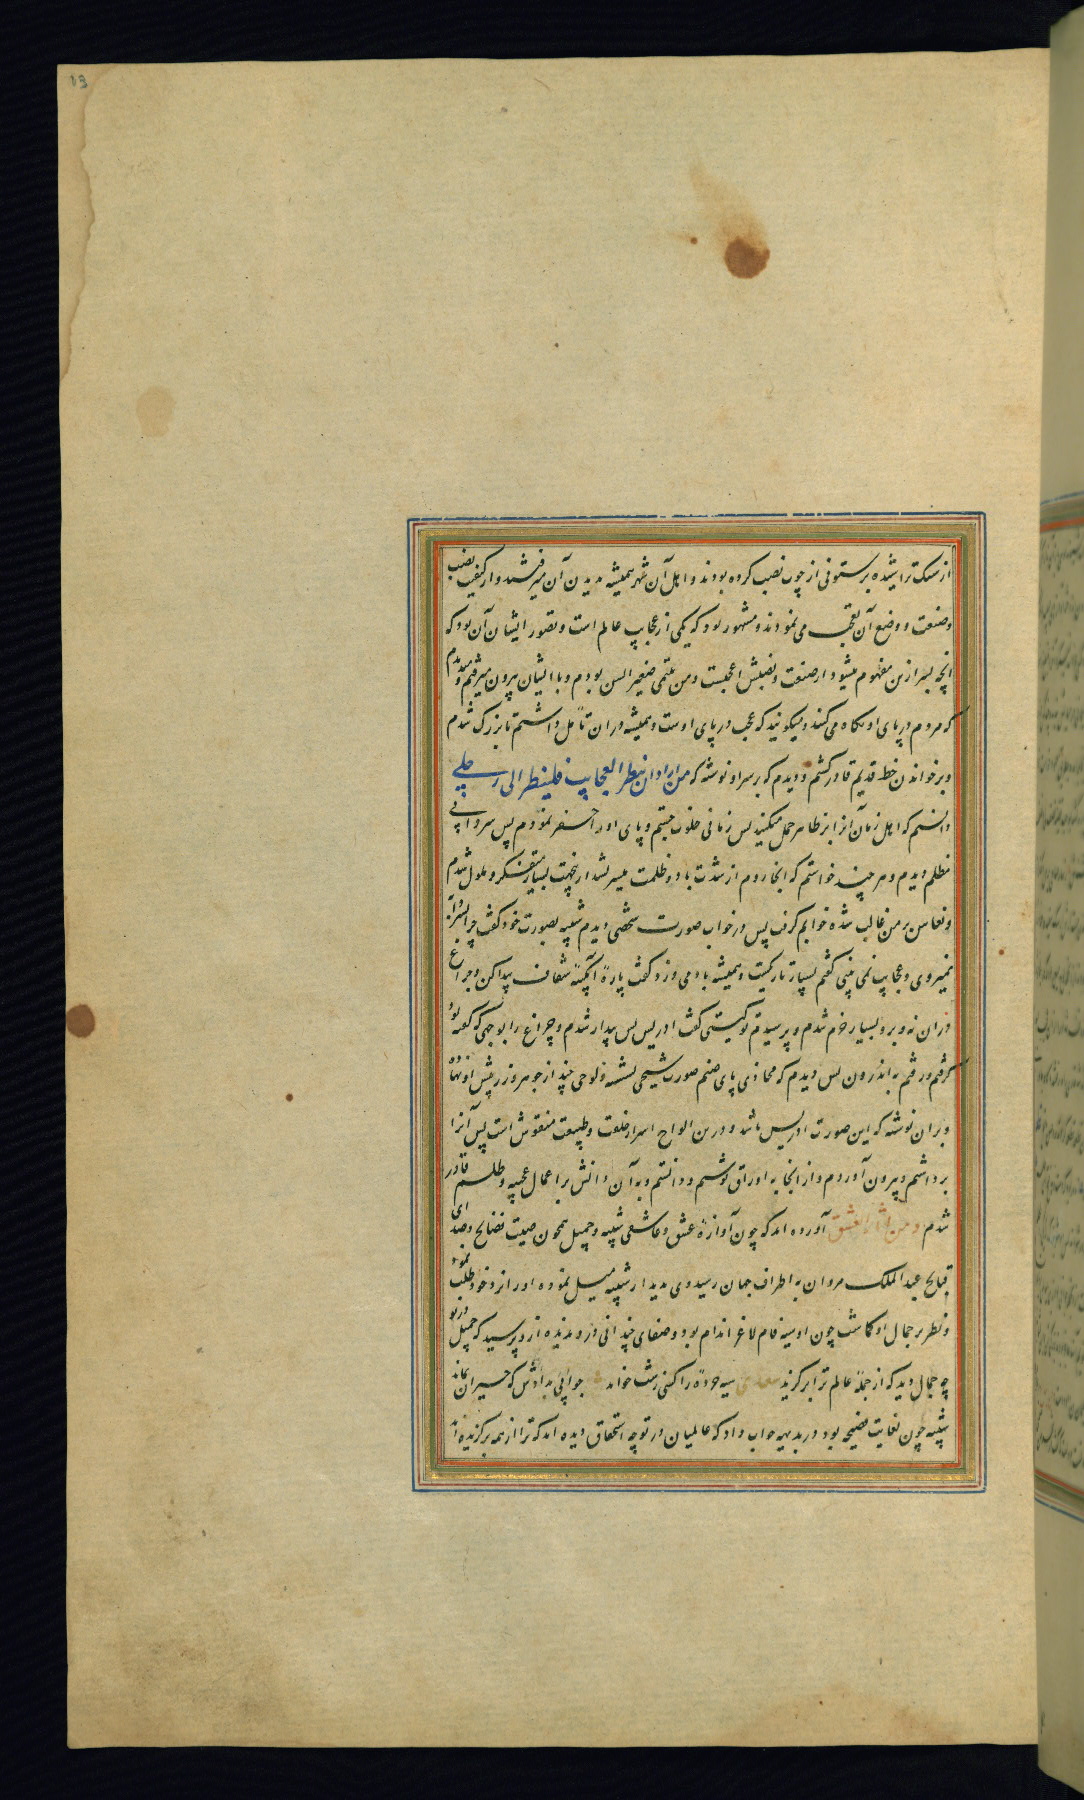 از سنک تراشیده بر ستونی از چوب نصب کرده بودند و اهل آن شهر همیشه بدیدن آن میرفتند و از کیفیت نصب
و صنعت و وضع آن تعجب می نمودند و مشهور بود که یکی از عجایب عالم است و تصور ایشان آن بود که
انچه بسر ازین مفهوم میشود از صنعت و نصبش اعجبست و من یتیمی صغیر السن بودم و با ایشان بیرون میرفتم و میدیدم
که مردم در پای او نکاه می کنند و میکویند که عجب در پای اوست و همیشه در ان تأمل داشتم تا بزرک شدم
و بر خواندن خط قدیم قادر کشتم و دیدم که بر سر او نوشته که من اراد ان ینظر العجایب فلینظر الی رجلی
دانستم که اهل زمان آنرا بر ظاهر حمل میکنند پس زمانی خلوت جستم و پای او را حفر نمودم پس سردابی
مظلم دیدم و هر چند خواستم که انجا روم از شدت باد و ظلمت میسر نشد ازینجهت بسیار متفکر و ملول شدم
و نعاس بر من غالب شده خوابم کرفت پس در خواب صورت شخصی دیدم شبیه بصورت خود کفت چرا بسردابه
نمیروی و عجایب نمی بینی کفتم بسیار تاریکست و همیشه باد می وزد کفت پارۀ آبکینۀ شفاف پیدا کن و چراغ
در ان نه و برو بسیار خرم شدم و پرسیدم تو کیستی کفت ادریس پس بیدار شدم و چراغ را بوجهی که کفته بود
کرفتم و رفتم به اندرون پس دیدم که محاذی پای صنم صورت شیخی نشسته و لوحی چند از جوهر زر پیش او نهاده
و بران نوشته که این صورت ادریس باشد و درین الواح اسرار خلقت و طبیعت منقوش است پس آنرا
برداشتم و بیرون آوردم و از انجا به اوراق نوشتم و دانستم و به آن دانش بر اعمال عجیبه و طلسم قادر
شدم و من آثار العشق آورده اند که چون آوازۀ عشق و عاشقی بثینه و جمیل همچون صیت فضائح و صدای
قبائح عبد الملک مروان به اطراف جهان رسید وی بدیدار بثینه میل نموده او را نزد خود طلب نمود
و نظر بر جمال او کماشت چون او سیه فام لاغر اندام بود و صفای چندانی در و ندیده از و پرسید که جمیل در تو
چه جمال دید که از جملۀ عالم ترا برکزید سعدی سیه چردۀ را کسی زشت خواند جوابی بدادش که حیران بماند
بثینه چون بغایت فصیحه بود در بدیهه جواب داد که عالمیان در تو چه استحقاق دیده اند که ترا از همه برکزیده اند